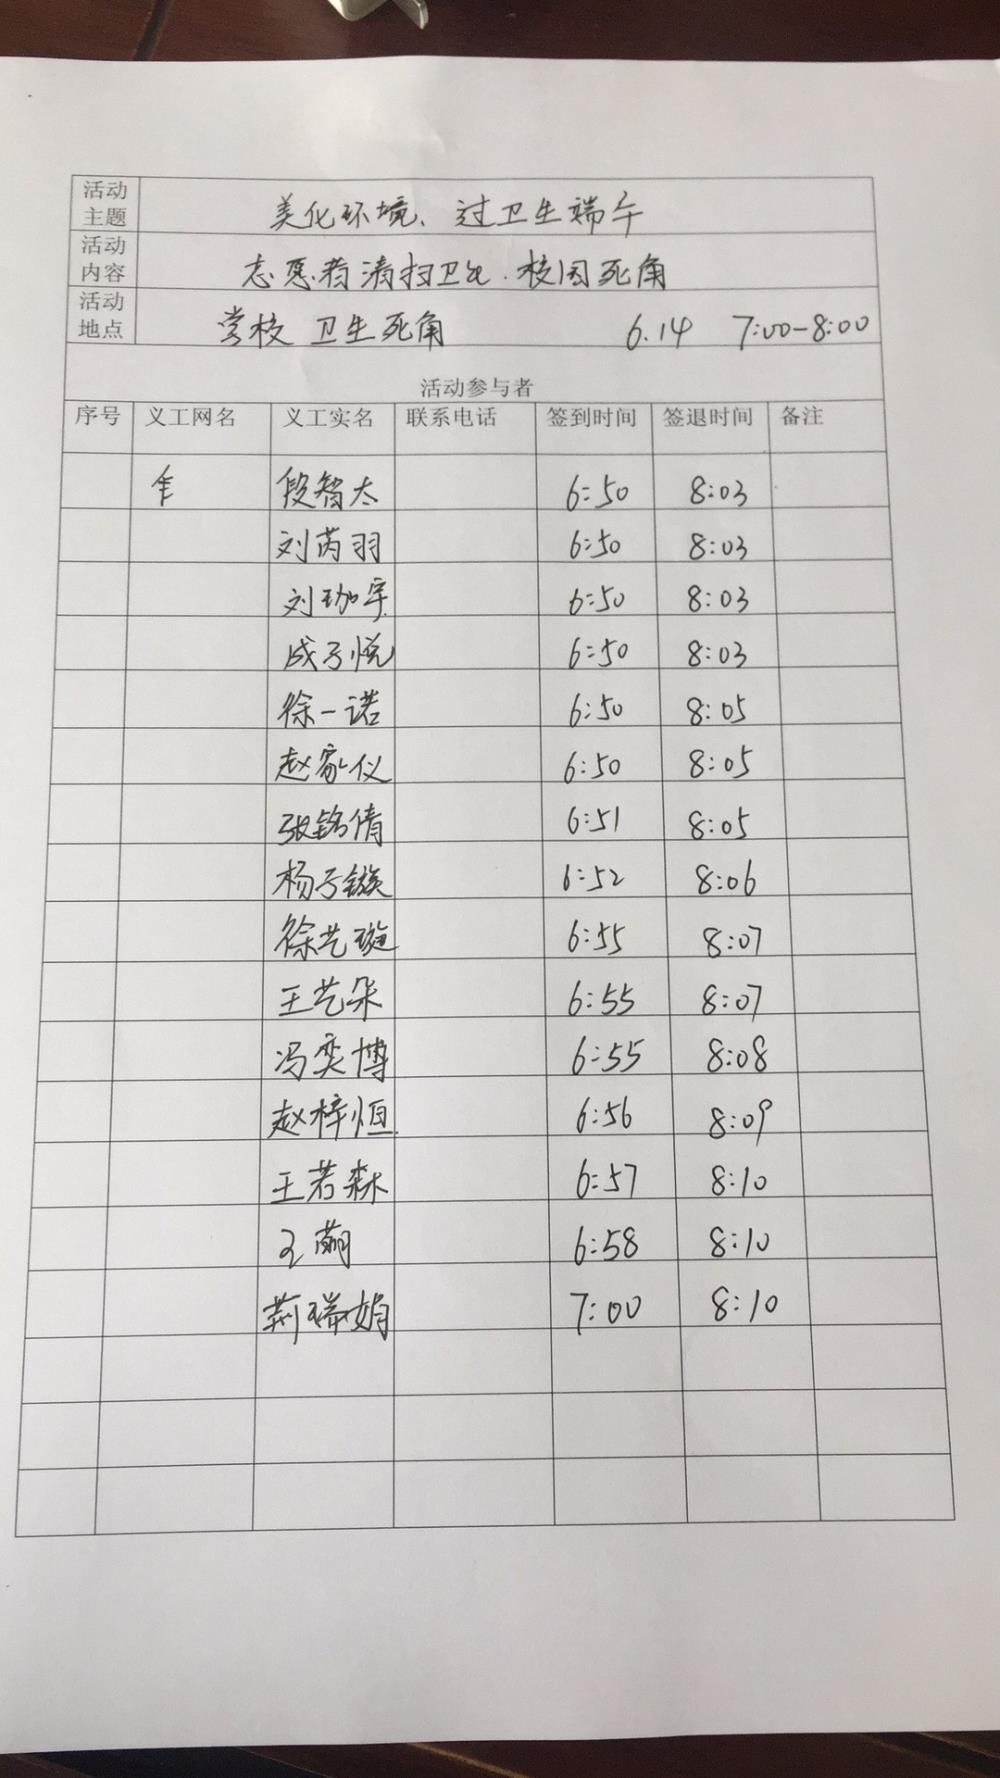 活动主题 美化环境、过卫生端午
活动内容 志愿者清扫卫生.校园死角
活动地点 学校 卫生死角 6.14 7:00-8:00
活动参与者
序号 义工网名 义工实名 联系电话 签到时间 签退时间 备注
段智太 6:50 8:03
刘芮羽 6:50 8:03
刘珈宇 6:50 8:03
成子悦 6:50 8:03
徐一诺 6:50 8:05
赵家仪 6:50 8:05
张铭倩 6:51 8:05
杨子镟 6:52 8:06
徐艺璇 6:55 8:07
王艺朵 6:55 8:07
冯奕博 6:55 8:08
赵梓恒 6:56 8:09
王若森 6:57 8:10
王萌 6:58 8:10
荆瑞娟 7:00 8:10